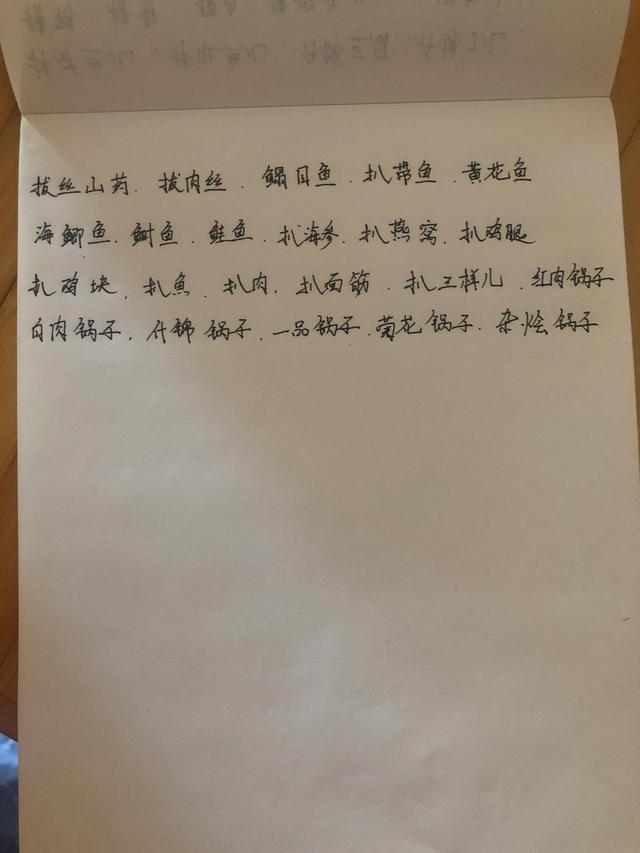 拔丝山药、拔肉丝、鳎目鱼、扒带鱼、黄花鱼
海鲫鱼、鲥鱼、鲑鱼、扒海参、扒燕窝、扒鸡腿
扒鸡块、扒魚、扒肉、扒面筋、扒三样儿、红肉锅子
白肉锅子、什锦锅子、一品锅子、菊花锅子、杂烩锅子